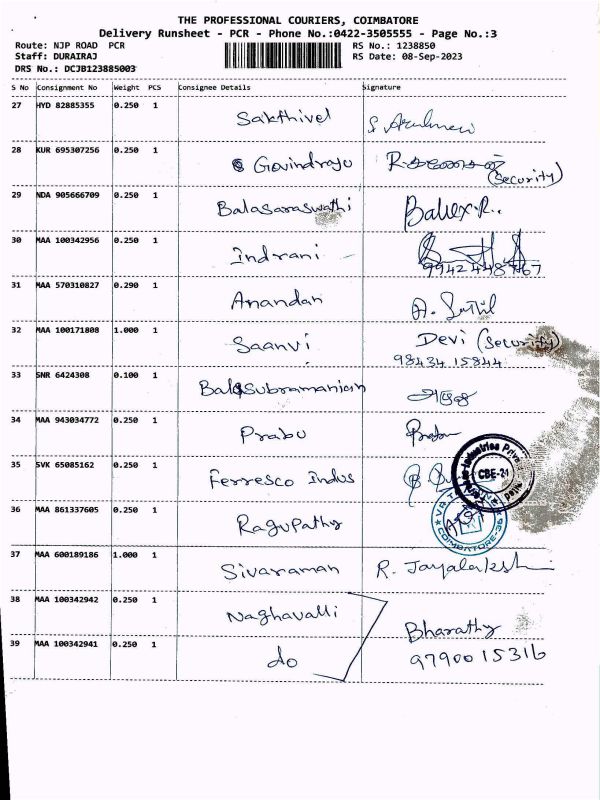 THE PROFESSIONAL COURIERS, COIMBATORE
Delivery Runsheet - PCR - Phone No.:0422-3505555 - Page No.:3
Route: NJP ROAD PCR RS No.: 1238850
Staff: DURAIRAJ RS Date: 08-Sep-2023
DRS No.: DCJB123885003
S No Consignment No Weight PCS Consignee Details Signature
27 HYD 82885355 0.250 1 Sakthivel
28 KUR 695307256 0.250 1 Govindraju (Security)
29 NDA 905666709 0.250 1 Balasaraswathi
30 MAA 100342956 0.250 1 Indrani
9942448767
31 MAA 570310827 0.290 1 Anandan
32 MAA 100171808 1.000 1 Saanvi Devi (Security)
98434 15844
33 SNR 6424308 0.100 1 Balasubramanian
34 MAA 943034772 0.250 1 Prabu Prabu
35 SVK 65085162 0.250 1 Ferresco Indus
CBE-21
36 MAA 861337605 0.250 1 Ragupathy
COIMBATORE-36
37 MAA 600189186 1.000 1 Sivaraman R. Jayalakshmi
38 MAA 100342942 0.250 1 Naghavalli Bharathy
39 MAA 100342941 0.250 1 do 9790015316